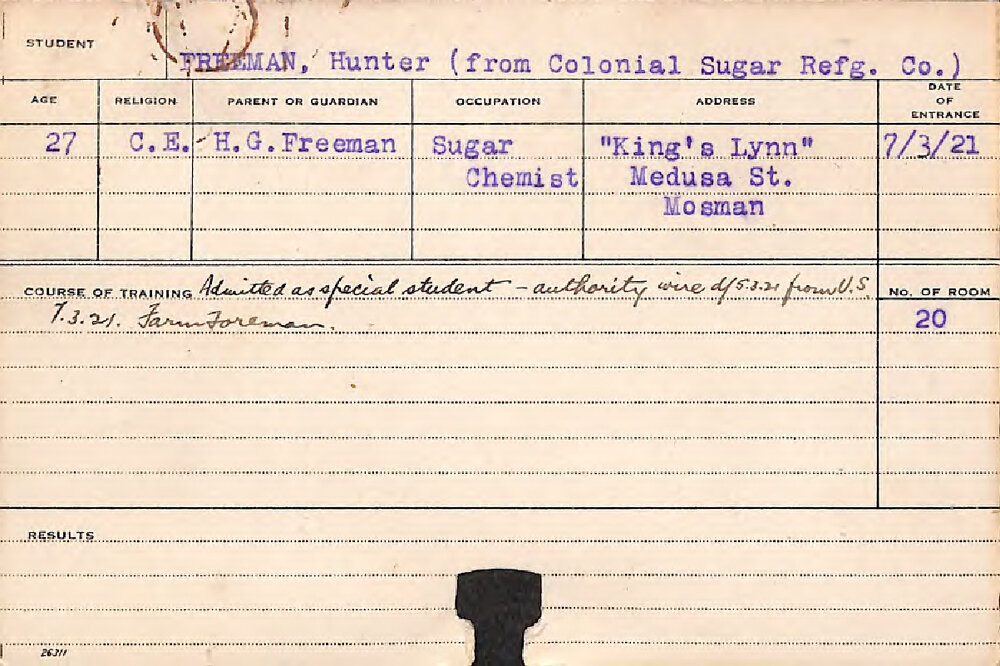 STUDENT
FREEMAN, Hunter (from Colonial Sugar Refg. Co.)
AGE RELIGION PARENT OR GUARDIAN OCCUPATION ADDRESS DATE OF ENTRANCE
27 C.E. H.G.Freeman Sugar "King's Lynn" 7/3/21
Chemist Medusa St.
Mosman
COURSE OF TRAINING Admitted as special student - authority wire d/5.3.21 from U.S. No. OF ROOM
7.3.21. Farm Foreman. 20
RESULTS
26311